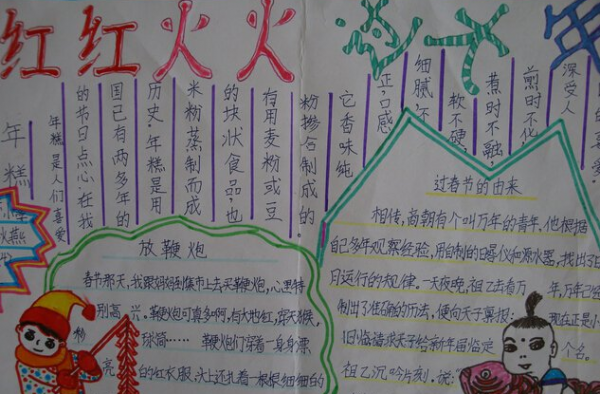 红红火火过大年
年糕
年糕是人们喜爱
的节日点心.在我
国已有两多年的
历史.年糕是用
米粉蒸制而成
的块状食品,也
有用麦粉或豆
粉掺合制成的
它香味纯
正,口感
细腻,不
软不硬,
煮时不融,
煎时不化
深受人
喜爱.
放鞭炮
春节那天,我跟妈妈到集市上去买鞭炮,心里特
别高兴。鞭炮可真多啊,有大地红,窜天猴,
球筒……鞭炮们穿着一身身漂
亮的红衣服,头上还扎着一根根细细的
过春节的由来
相传,商朝有个叫万年的青年,他根据
自己多年观察经验,用自制的日晷仪和漏水器,找出了日
月运行的规律。一天夜晚,祖乙去看万年,万年已经
制出了准确的历法,便向天子奏报:现在正是小
旧临请求天子给新年国临定个名。
祖乙沉吟片刻.说:"